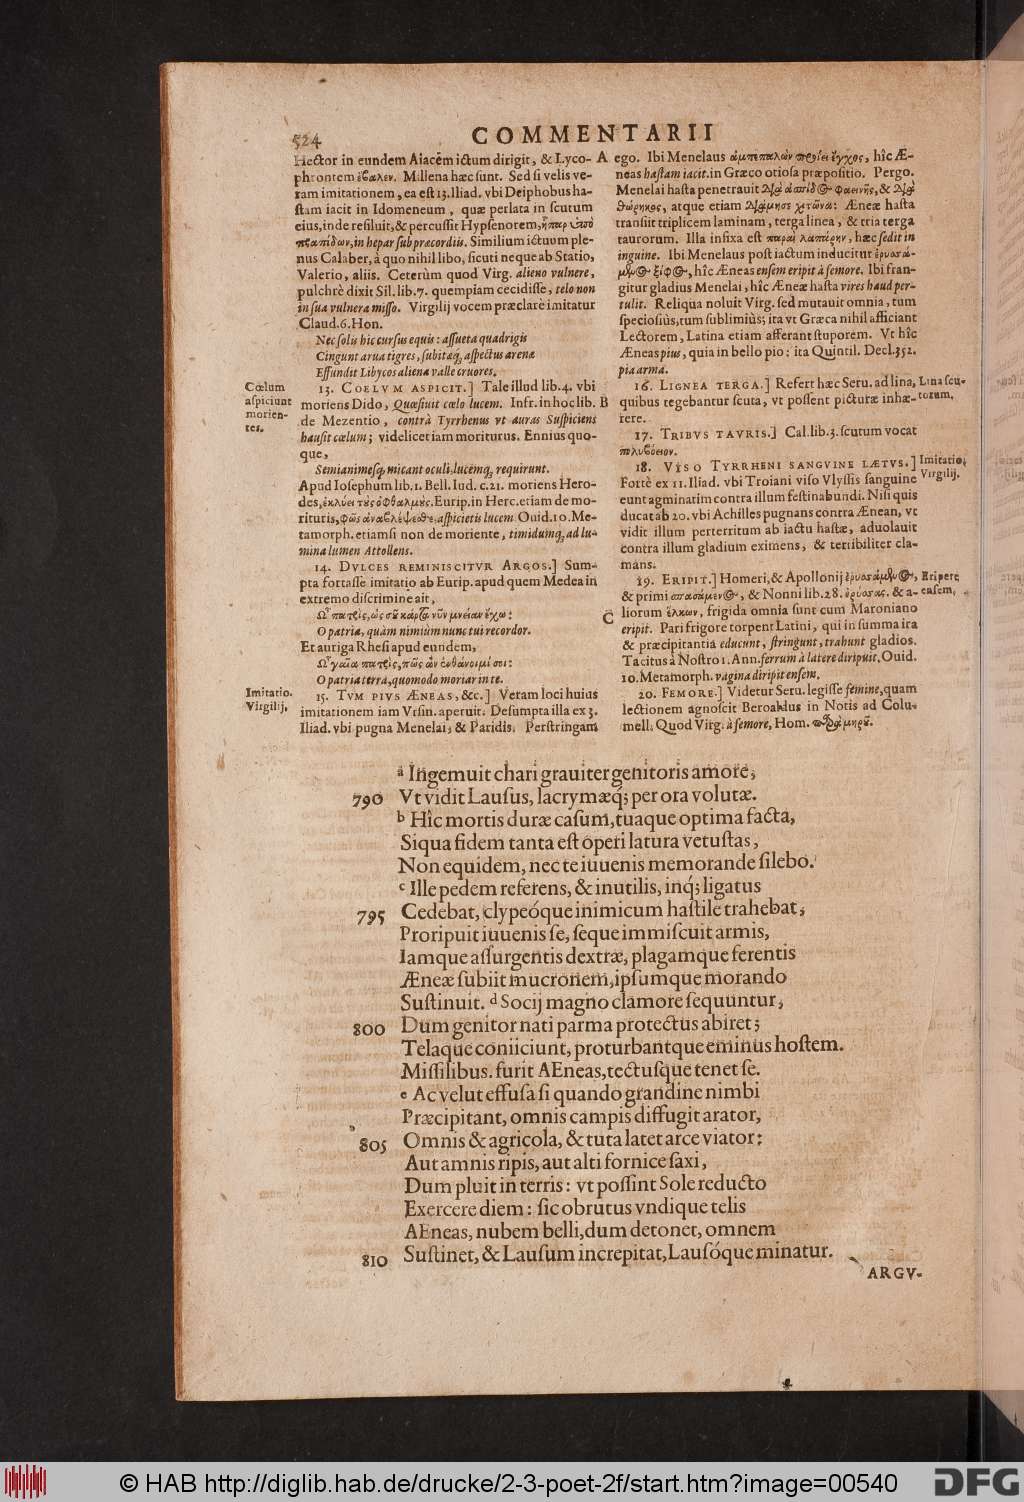 524
COMMENTARII
Hector in eundem Aiacem ictum dirigit, & Lyco-
phrontem ἔβαλεν. Millena hæc sunt. Sed si velis ve-
ram imitationem, ea est 13. Iliad. vbi Deiphobus ha-
stam iacit in Idomeneum, quæ perlata in scutum
eius, inde resiluit, & percussit Hypsenorem, ἧπαρ ὑπὸ
πραπίδων, in hepar sub præcordiis. Similium ictuum ple-
nus Calaber, à quo nihil libo, sicuti neque ab Statio,
Valerio, aliis. Ceterùm quod Virg. alieno vulnere,
pulchrè dixit Sil. lib. 7. quempiam cecidisse, telo non
in sua vulnera misso. Virgilij vocem præclarè imitatur
Claud. 6. Hon.
Nec solis hic cursus equis: assueta quadrigis
Cingunt arua tigres, subitaq; aspectus arenæ
Effundit Libycos aliena valle cruores.
Cœlum
aspiciunt
morien-
tes.
13. COELVM ASPICIT.] Tale illud lib. 4. vbi
moriens Dido, Quæsiuit cœlo lucem. Infr. in hoc lib.
de Mezentio, contrà Tyrrhenus vt auras Suspiciens
hausit cœlum; videlicet iam moriturus. Ennius quo-
que,
Semianimesq; micant oculi, lucemq; requirunt.
Apud Iosephum lib. 1. Bell. Iud. c. 21. moriens Hero-
des, ἐκλύει τοὺς ὀφθαλμούς. Eurip. in Herc. etiam de mo-
rituris, φῶς ἀναβλέψεσθε, aspicietis lucem Ouid. 10. Me-
tamorph. etiamsi non de moriente, timidumq; ad lu-
mina lumen Attollens.
14. DVLCES REMINISCITVR ARGOS.] Sum-
pta fortasse imitatio ab Eurip. apud quem Medea in
extremo discrimine ait,
Ὦ πατρὶς, ὡς σοῦ κάρτα νῦν μνείαν ἔχω:
O patria, quàm nimiùm nunc tui recordor.
Et auriga Rhesi apud eundem,
Ὦ γαῖα πατρὶς, πῶς ἂν ἐνθάνοιμί σοι:
O patria terra, quomodo moriar in te.
Imitatio.
Virgilij.
15. TVM PIVS ÆNEAS, &c.] Veram loci huius
imitationem iam Vrsin. aperuit. Desumpta illa ex 3.
Iliad. vbi pugna Menelai, & Paridis. Perstringam
A
B
C
ego. Ibi Menelaus ἀμπεπαλὼν προΐει ἔγχος, hîc Æ-
neas hastam iacit. in Græco otiosa præpositio. Pergo.
Menelai hasta penetrauit διὰ ἀσπίδος φαεινῆς, & διὰ
θώρηκος, atque etiam διάμησε χιτῶνα: Æneæ hasta
transiit triplicem laminam, terga linea, & tria terga
taurorum. Illa infixa est παραὶ λαπάρην, hæc sedit in
inguine. Ibi Menelaus post iactum inducitur ἐρυσσά-
μενος ξίφος, hîc Æneas ensem eripit à femore. Ibi fran-
gitur gladius Menelai, hîc Æneæ hasta vires haud per-
tulit. Reliqua noluit Virg. sed mutauit omnia, tum
speciosiùs, tum sublimiùs; ita vt Græca nihil afficiant
Lectorem, Latina etiam afferant stuporem. Vt hîc
Æneas pius, quia in bello pio: ita Quintil. Decl. 352.
pia arma.
16. LIGNEA TERGA.] Refert hæc Seru. ad lina,
quibus tegebantur scuta, vt possent picturæ inhæ-
rere.
Lina scu-
torum.
17. TRIBVS TAVRIS.] Cal. lib. 3. scutum vocat
πολυβόειον.
18. VISO TYRRHENI SANGVINE LÆTVS.]
Fortè ex 11. Iliad. vbi Troiani viso Vlyssis sanguine
eunt agminatim contra illum festinabundi. Nisi quis
ducat ab 20. vbi Achilles pugnans contra Ænean, vt
vidit illum perterritum ab iactu hastæ, aduolauit
contra illum gladium eximens, & terribiliter cla-
mans.
Imitatio,
Virgilij.
19. ERIPIT.] Homeri, & Apollonij ἐρυσσάμενος,
& primi σπασάμενος, & Nonni lib. 28. ἐρύσσας, & a-
liorum ἕλκων, frigida omnia sunt cum Maroniano
eripit. Pari frigore torpent Latini, qui in summa ira
& præcipitantia educunt, stringunt, trahunt gladios.
Tacitus à Nostro 1. Ann. ferrum à latere diripuit. Ouid.
10. Metamorph. vagina diripit ensem.
Eripere
ensem.
20. FEMORE.] Videtur Seru. legisse femine, quam
lectionem agnoscit Beroaldus in Notis ad Colu-
mell. Quod Virg. à femore, Hom. παρὰ μηροῦ.
a Ingemuit chari grauiter genitoris amore;
790 Vt vidit Lausus, lacrymæq; per ora volutæ.
b Hîc mortis duræ casum, tuaque optima facta,
Siqua fidem tanta est operi latura vetustas,
Non equidem, nec te iuuenis memorande silebo.
c Ille pedem referens, & inutilis, inq; ligatus
795 Cedebat, clypeóque inimicum hastile trahebat;
Proripuit iuuenis se, seque immiscuit armis,
Iamque assurgentis dextræ, plagamque ferentis
Æneæ subiit mucronem, ipsumque morando
Sustinuit. d Socij magno clamore sequuntur,
800 Dum genitor nati parma protectus abiret;
Telaque coniiciunt, proturbantque eminus hostem.
Missilibus. furit AEneas, tectusque tenet se.
e Ac velut effusa si quando grandine nimbi
Præcipitant, omnis campis diffugit arator,
805 Omnis & agricola, & tuta latet arce viator:
Aut amnis ripis, aut alti fornice saxi,
Dum pluit in terris: vt possint Sole reducto
Exercere diem: sic obrutus vndique telis
AEneas, nubem belli, dum detonet, omnem
810 Sustinet, & Lausum increpitat, Lausóque minatur.
ARGV-
© HAB http://diglib.hab.de/drucke/2-3-poet-2f/start.htm?image=00540
DFG